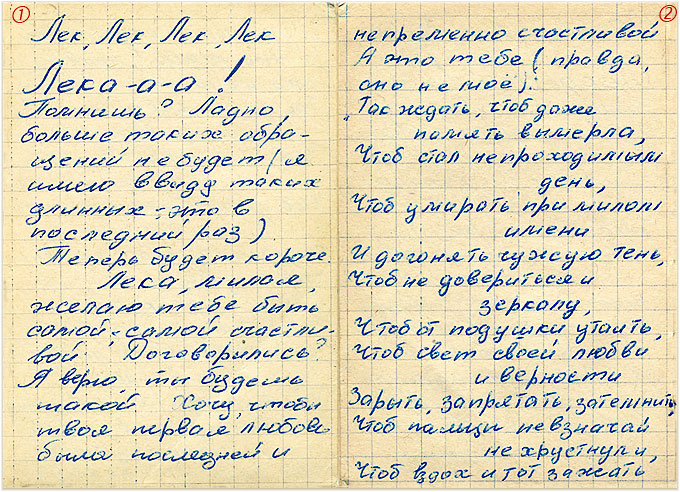 1
Лек, Лек, Лек, Лек
Лека-а-а!
Помнишь? Ладно,
больше таких обра-
щений не будет (я
имею ввиду таких
длинных - это в
последний раз).
Теперь будет короче.
Лека, милая,
желаю тебе быть
самой-самой счастли-
вой. Договорились?
Я верю, ты будешь
такой. Хочу, чтобы
твоя первая любовь
была последней и
2
непременно счастливой
А это тебе (правда,
оно не моё).
"Так ждать, чтоб даже
память вымерла,
Чтоб стал непроходимым
день,
Чтоб умирать при милом
имени
И догонять чужую тень,
Чтоб не довериться и
зеркалу,
Чтоб от подушки утаить,
Чтоб свет своей любви
и верности
Зарыть, запрятать, затемнить,
Чтоб пальцы невзначай
не хрустнули,
Чтоб вздох и тот зажать